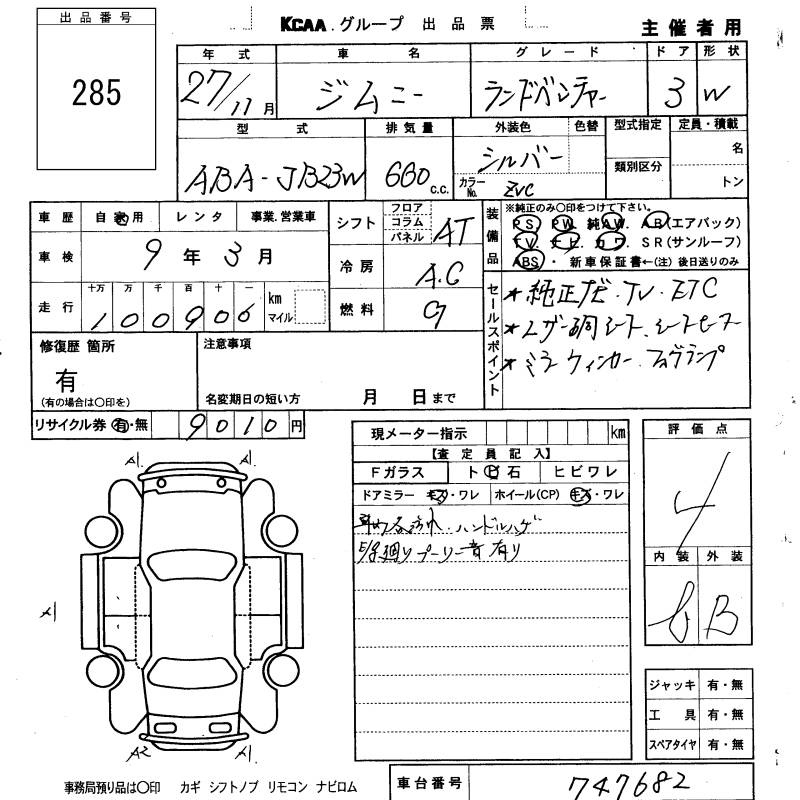 出品番号
285
KCAA グループ 出品票
主催者用
年式 車名 グレード ドア 形状
27/11月 ジムニー ランドベンチャー 3 W
型式 排気量 外装色 色替 型式指定 定員・積載
ABA-JB23W 660 c.c. シルバー 類別区分 名
カラーNo. ZVC トン
車歴 自家用 レンタ 事業.営業車
車検 9年3月
走行 十万 万 千 百 十 一 km マイル
100906
シフト フロア コラム パネル AT
冷房 A.C
燃料 ガ
装備品 ※純正のみ〇印をつけて下さい。
PS. PW. 純AW. AB(エアバック)
TV. ナビ. カワ. SR(サンルーフ)
ABS・ 新車保証書←(注) 後日送りのみ
セールスポイント
★純正ナビ.TV.ETC
★レザー調シート.シートヒーター
★ミラーウィンカー.フォグランプ
修復歴 箇所 注意事項
有
(有の場合は〇印を) 名変期日の短い方 月 日まで
リサイクル券 有・無 9010円
現メーター指示 km
【査定員記入】
Fガラス トビ石 ヒビワレ
ドアミラー キズ・ワレ ホイール(CP) キズ・ワレ
ハンドルハゲ
プーリー音有り
評価点
4
内装 外装
B
A1 A1
A1 A1
A2 A1
ジャッキ 有・無
工具 有・無
スペアタイヤ 有・無
事務局預り品は〇印 カギ シフトノブ リモコン ナビロム
車台番号 747682